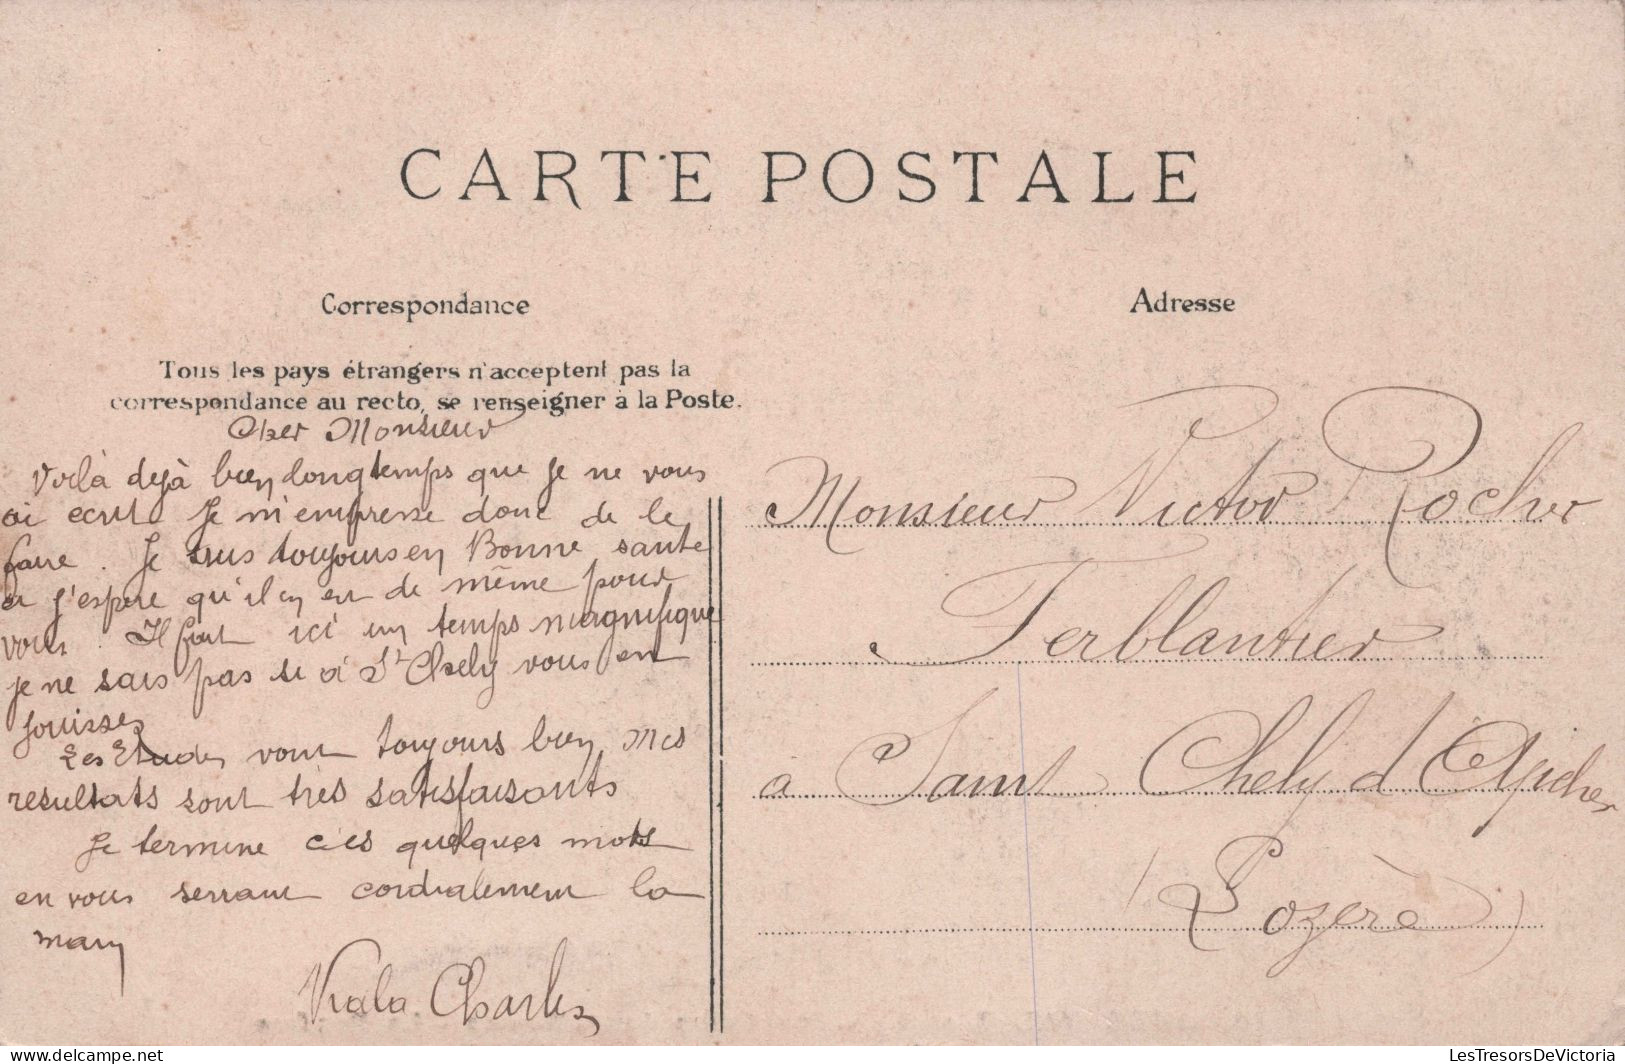 CARTE POSTALE
Correspondance
Tous les pays étrangers n'acceptent pas la
correspondance au recto, se renseigner à la Poste.
Cher Monsieur
Voilà dejà bien longtemps que je ne vous
ai ecrit Je m'empresse donc de le
faire. Je suis toujours en Bonne sante
et j'espere qu'il en est de même pour
vous. Il fait ici un temps magnifique
je ne sais pas si à St Chely vous en
jouisses
Les Etudes vont toujours bien, mes
resultats sont très satisfaisants
Je termine ces quelques mots
en vous serrant cordialement la
main
Viala Charles
Adresse
Monsieur Victor Rocher
Ferblantier
à Saint Chely d'Apcher
(Lozère)
LesTresorsDeVictoria
www.delcampe.net